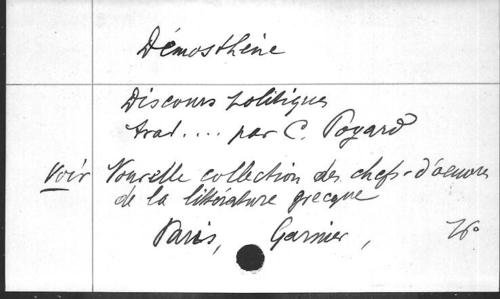 Démosthène
Discours politiques
trad.... par C. Poyard
voir Nouvelle collection des chefs-d'oeuvres
de la littérature grecque
Paris, Garnier,